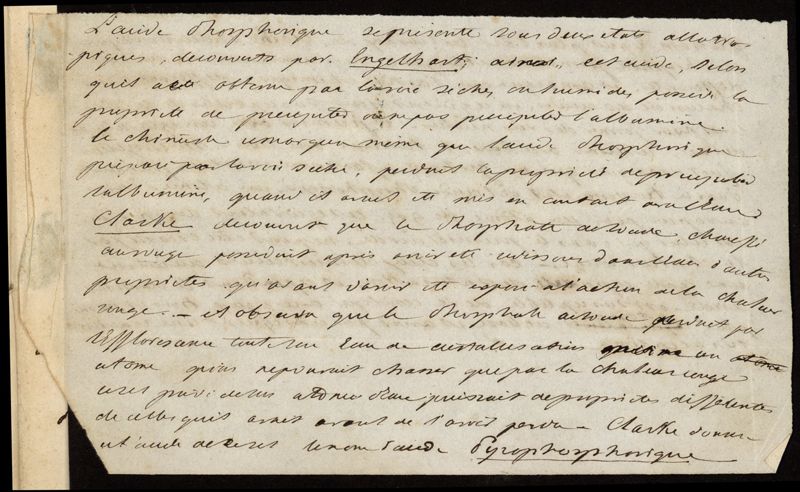 L'acide Phosphorique se présente sous deux états allotro
piques, découverts par Engelhart; ainsi, cet acide, selon
qu'il a été obtenu par la voie sèche, ou humide, possede la
propriété de precipiter ou ne pas precipiter l'albumine.
le chimiste remarqua même que l'acide Phosphorique
préparé par la voie sèche, perdait la propriété de precipiter
l'albumine, quand il avait été mis en contact avec l'eau
Clarke découvrit que le Phosphate de soude chauffé
au rouge possedait après avoir été dissous dans l'eau d'autres
propriétés qu'avant d'avoir été exposé a l'action de la chaleur
rouge. — et observa que le Phosphate de soude perdait par
l'efflorescence toute son Eau de cristallisation un atome
atome qu'on ne pouvait chasser que par la chaleur rouge
ce sel privé de cet atome d'eau jouissait de propriétés différentes
de celles qu'il avait avant de l'avoir perdu — Clarke donna
a l'acide de ce sel le nom d'acide Pyrophosphorique